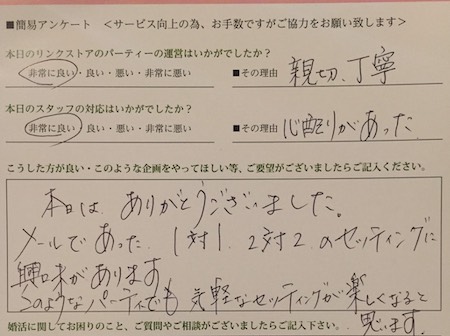 ■簡易アンケート ＜サービス向上の為、お手数ですがご協力をお願い致します＞
本日のリンクストアのパーティーの運営はいかがでしたか？
非常に良い・良い・悪い・非常に悪い ■その理由 親切、丁寧
本日のスタッフの対応はいかがでしたか？
非常に良い・良い・悪い・非常に悪い ■その理由 心配りがあった
こうした方が良い・このような企画をやってほしい等、ご要望がございましたらご記入ください。
本日は、ありがとうございました。
メールであった、1対1、2対2、のセッティングに
興味があります
このようなパーティでも気軽なセッティングが楽しくなると
思います。
婚活に関してお困りのこと、ご質問やご相談がございましたらご記入下さい。